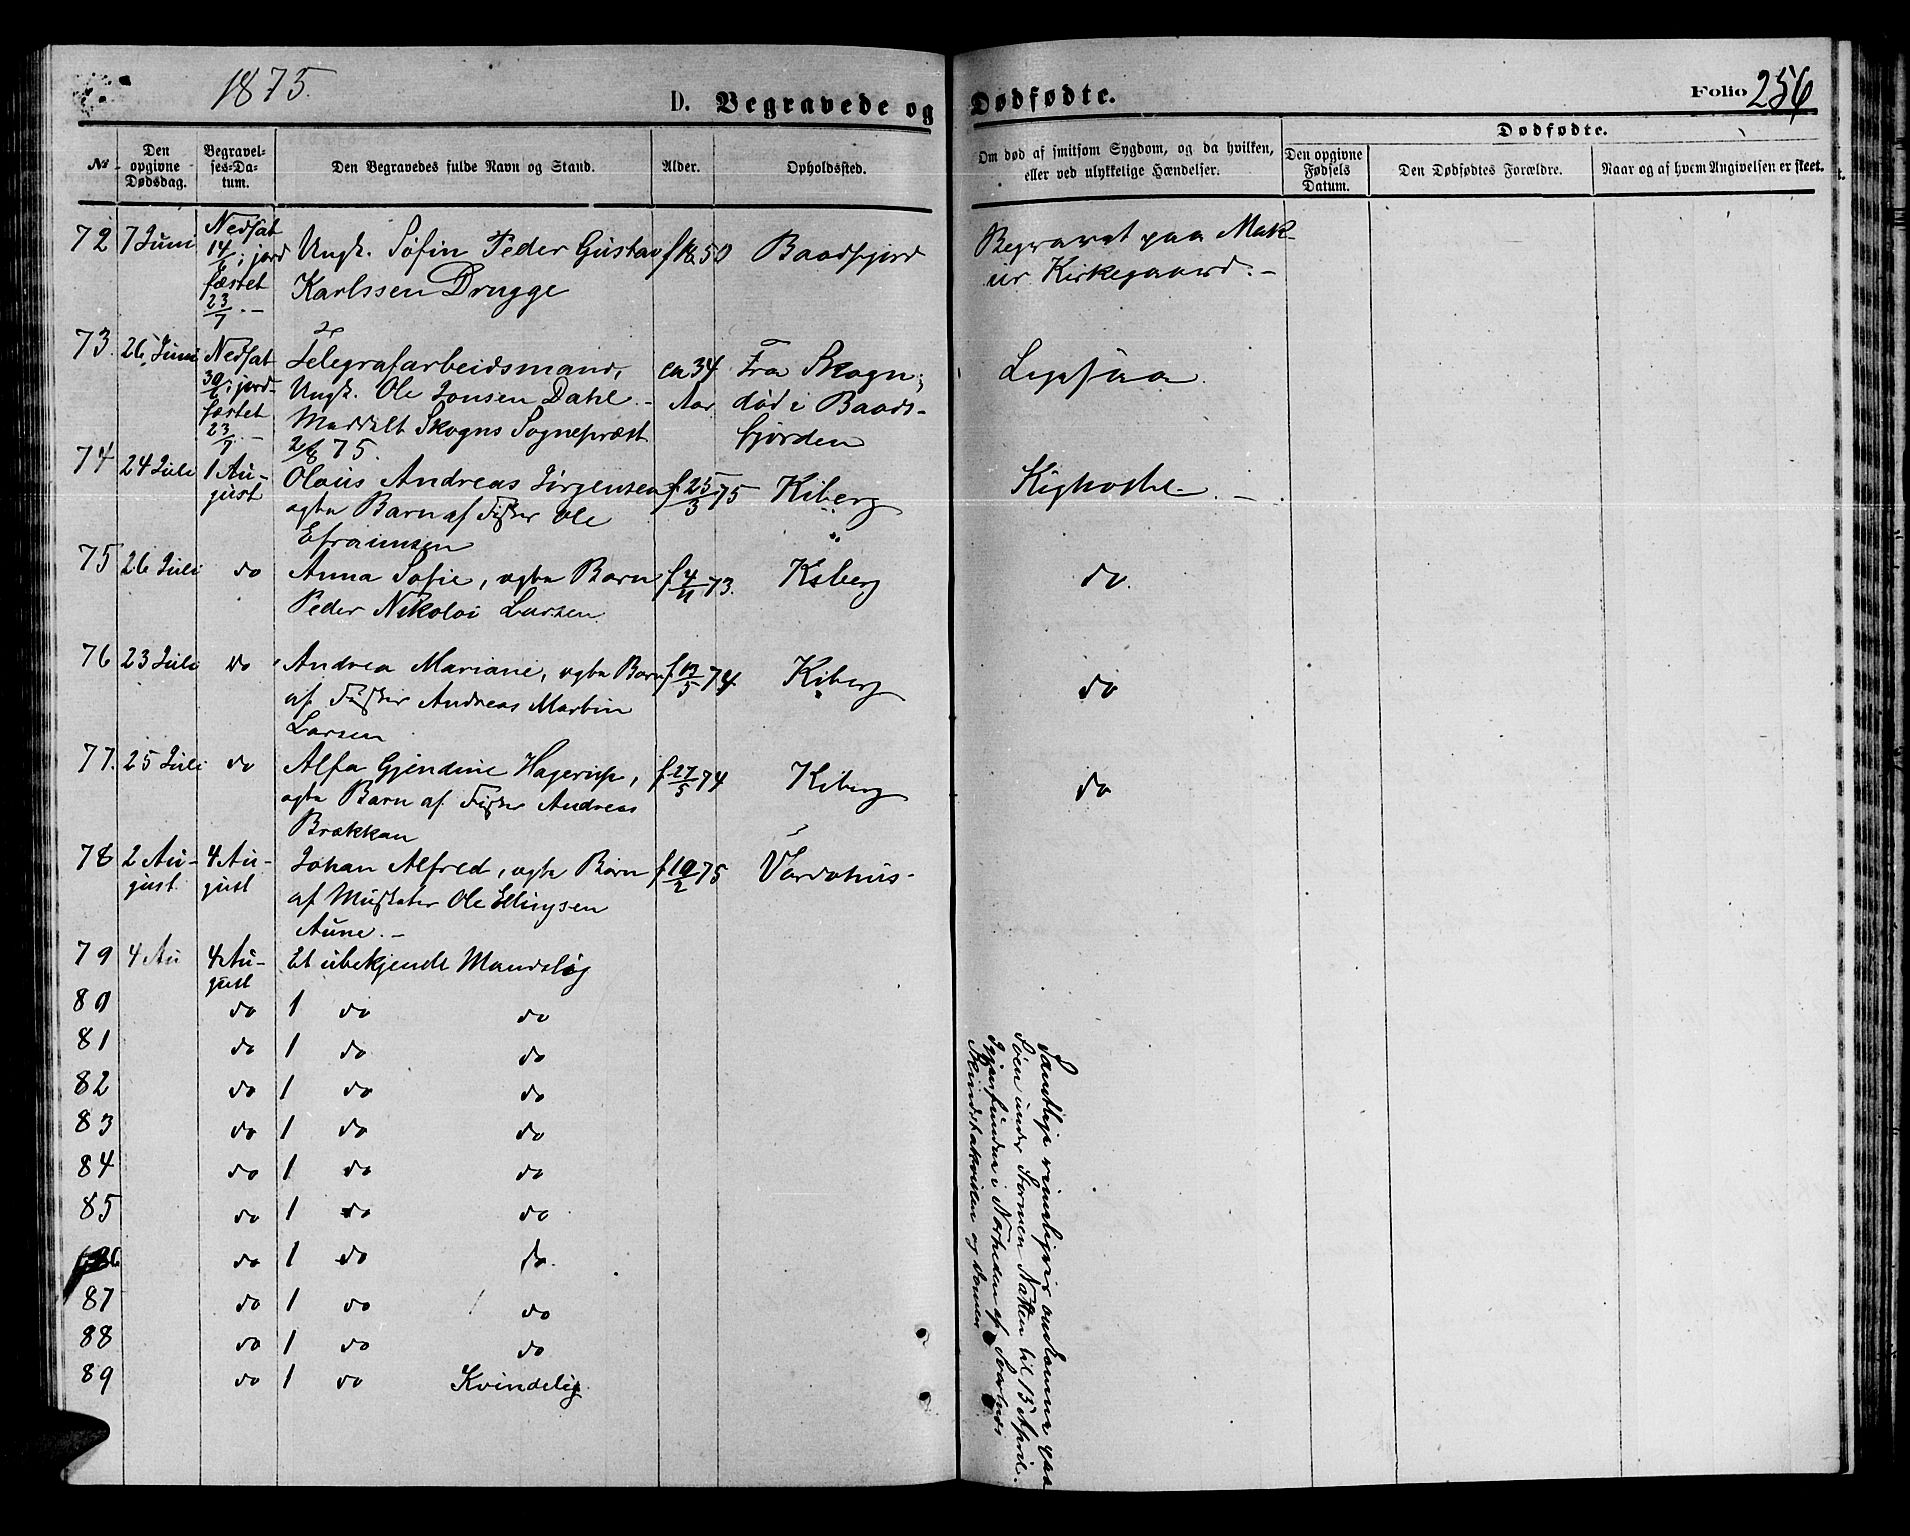 1875.
D. Begravede og Dødfødte.
Folio 256
No
Den opgivne Dødsdag.
Begravelses-Datum.
Den Begravedes fulde Navn og Stand.
Alder.
Opholdssted.
Om død af smitsom Sygdom, og da hvilken, eller ved ulykkelige Hændelser.
Dødfødte.
Den opgivne Fødsels Datum.
Den Dødfødtes Forældre.
Naar og af hvem Angivelsen er skeet.
72 7 Juni Nedsat 14/6; jordfæstet 23/7.— Ungk. Peder Gustav f 18 50 Baadsfjord Begravet paa Mak-
Karlssen Drugge eir Kirkegaard.—
73. 26 Juni Nedsat 30/6; jord- Telegrafarbeidsmand, ca 34 Fra Skogn;
fæstet 23/7.— Ungk. Ole Jonsen Dahl.— Aar død i Baads-
Meddelt Skogns Sognepræst fjorden
2/8 75.
74 24 Juli 1 Au- Olaus Andreas Jørgensen f 25/3 75 Kiberg Kighoste.—
gust ægte Barn af Fisker Ole
Efraimsen
75 26 Juli do Anna Sofie, ægte Barn f 4/11 73. Kiberg do.
Peder Nikolai Larsen
76 23 Juli do Andrea Mariane, ægte Barn f 12/5 74. Kiberg do
af Fisker Andreas Martin
Larsen
77. 25 Juli do Alfa Gjendine Hagerup, f 27/5 74 Kiberg do
ægte Barn af Fisker Andreas
Brækkan
78 2 Au- 4 Au- Johan Alfred, ægte Barn f 10/2 75 Vardøhus.
gust gust af Musketer Ole Ellingsen
Aune.—
79 4 Au 4 Au- Et ubekjendt Mandslig
gust
80 do 1 do do
81 do 1 do do
82 do 1 do do
83 do 1 do do
84 do 1 do do
85 do 1 do do
86 do 1 do do.
87 do 1 do do
88 do 1 do do
89 do 1 do Kvindelig.
Samtlige rimeligvis omkomne paa
Søen under Stormen Natten til 15 April.
Igjenfundne i Nærheden af Svartnes
og